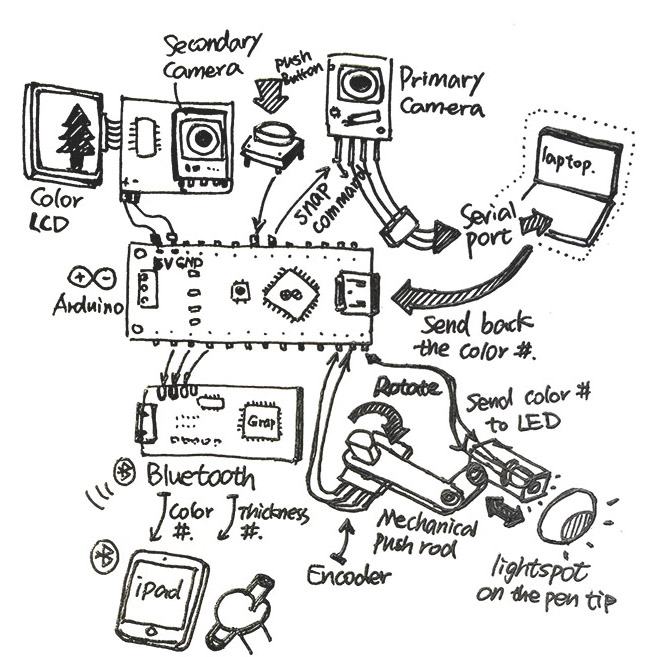 Secondary
Camera
Push
Button
Primary
Camera
Color
LCD
snap
command
Serial
port
laptop.
5V GND
Arduino
Send back
the color #.
Rotate
Send color #
to LED
Bluetooth
Color
#.
Thickness
#.
Mechanical
push rod
Encoder
lightspot
on the pen tip
iPad